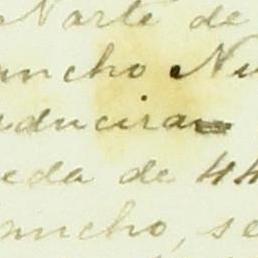 Norte de
ancho Nu
aducira
eda de 44
ancho, se